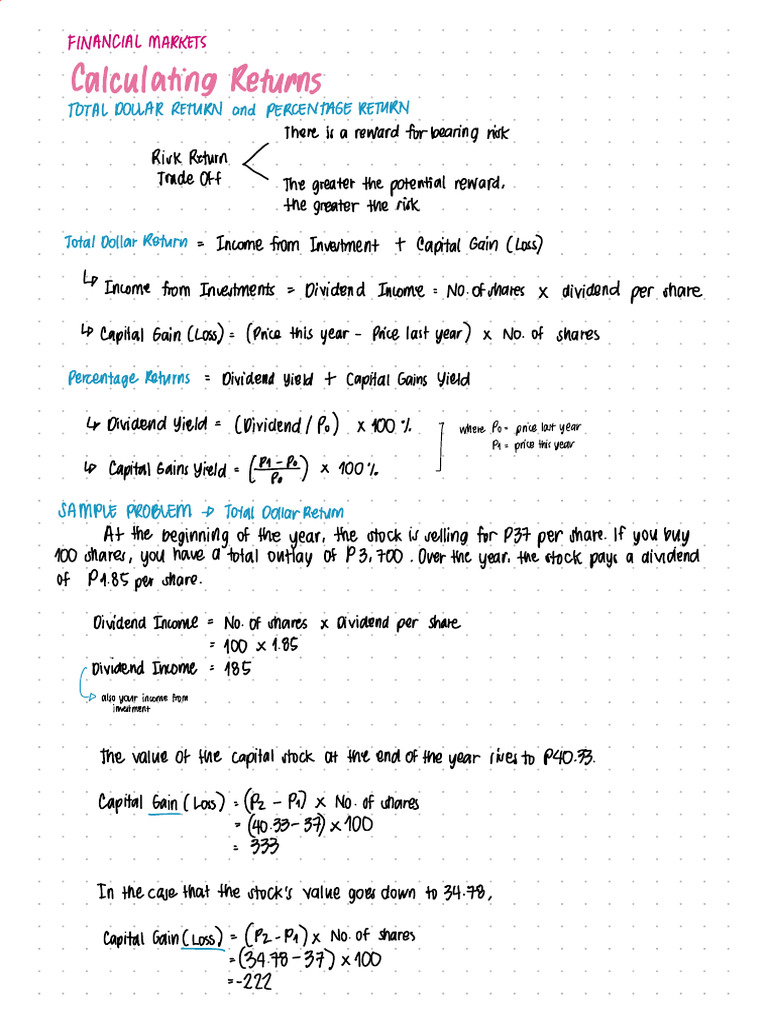 FINANCIAL MARKETS
Calculating Returns
TOTAL DOLLAR RETURN and PERCENTAGE RETURN
There is a reward for bearing risk
Risk Return
Trade Off
The greater the potential reward,
the greater the risk
Total Dollar Return = Income from Investment + Capital Gain (Loss)
↳ Income from Investments = Dividend Income = No. of shares x dividend per share
↳ Capital Gain (Loss) = (Price this year - Price last year) x No. of shares
Percentage Returns = Dividend yield + Capital Gains Yield
↳ Dividend Yield = (Dividend / P0) x 100 %
where P0 = price last year
P1 = price this year
↳ Capital Gains Yield = (P1 - P0 / P0) x 100%
SAMPLE PROBLEM → Total Dollar Return
At the beginning of the year, the stock is selling for P37 per share. If you buy
100 shares, you have a total outlay of P3,700. Over the year, the stock pays a dividend
of P1.85 per share.
Dividend Income = No. of shares x Dividend per share
= 100 x 1.85
Dividend Income = 185
→ also your income from
investment
The value of the capital stock at the end of the year rises to P40.33.
Capital Gain (Loss) = (P2 - P1) x No. of shares
= (40.33 - 37) x 100
= 333
In the case that the stock's value goes down to 34.78,
Capital Gain (Loss) = (P2 - P1) x No. of shares
= (34.78 - 37) x 100
= -222